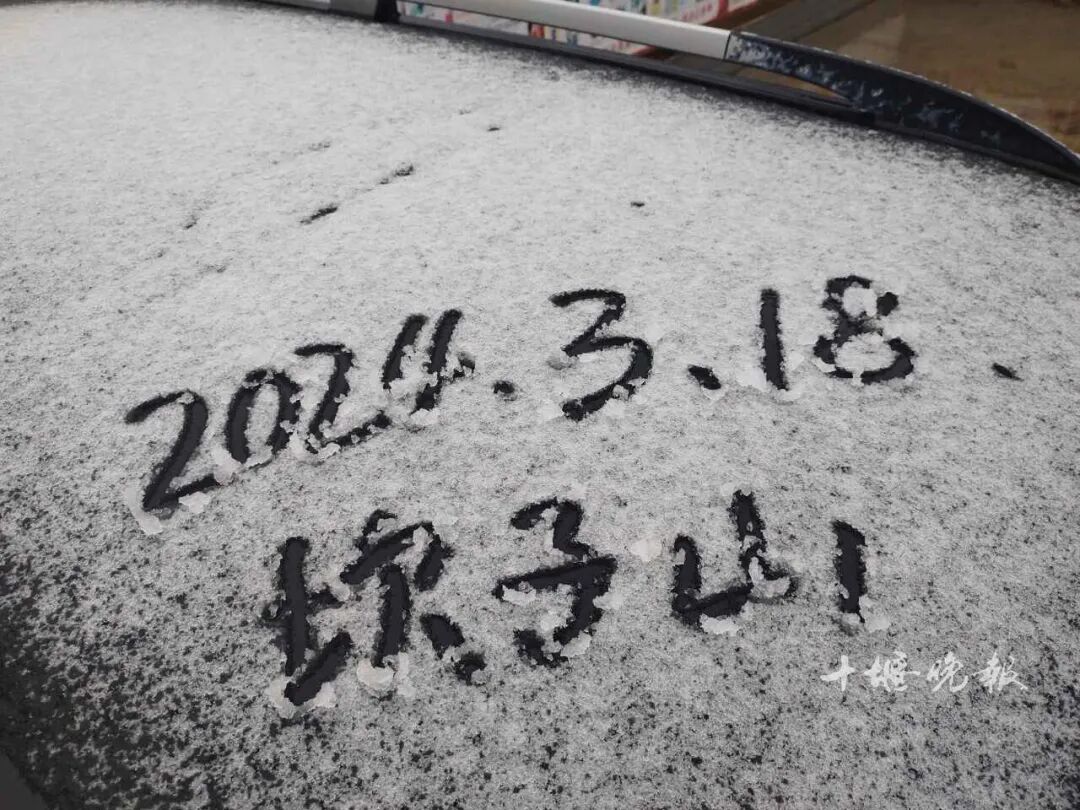 2024.3.18.
坎子山
十堰晚报